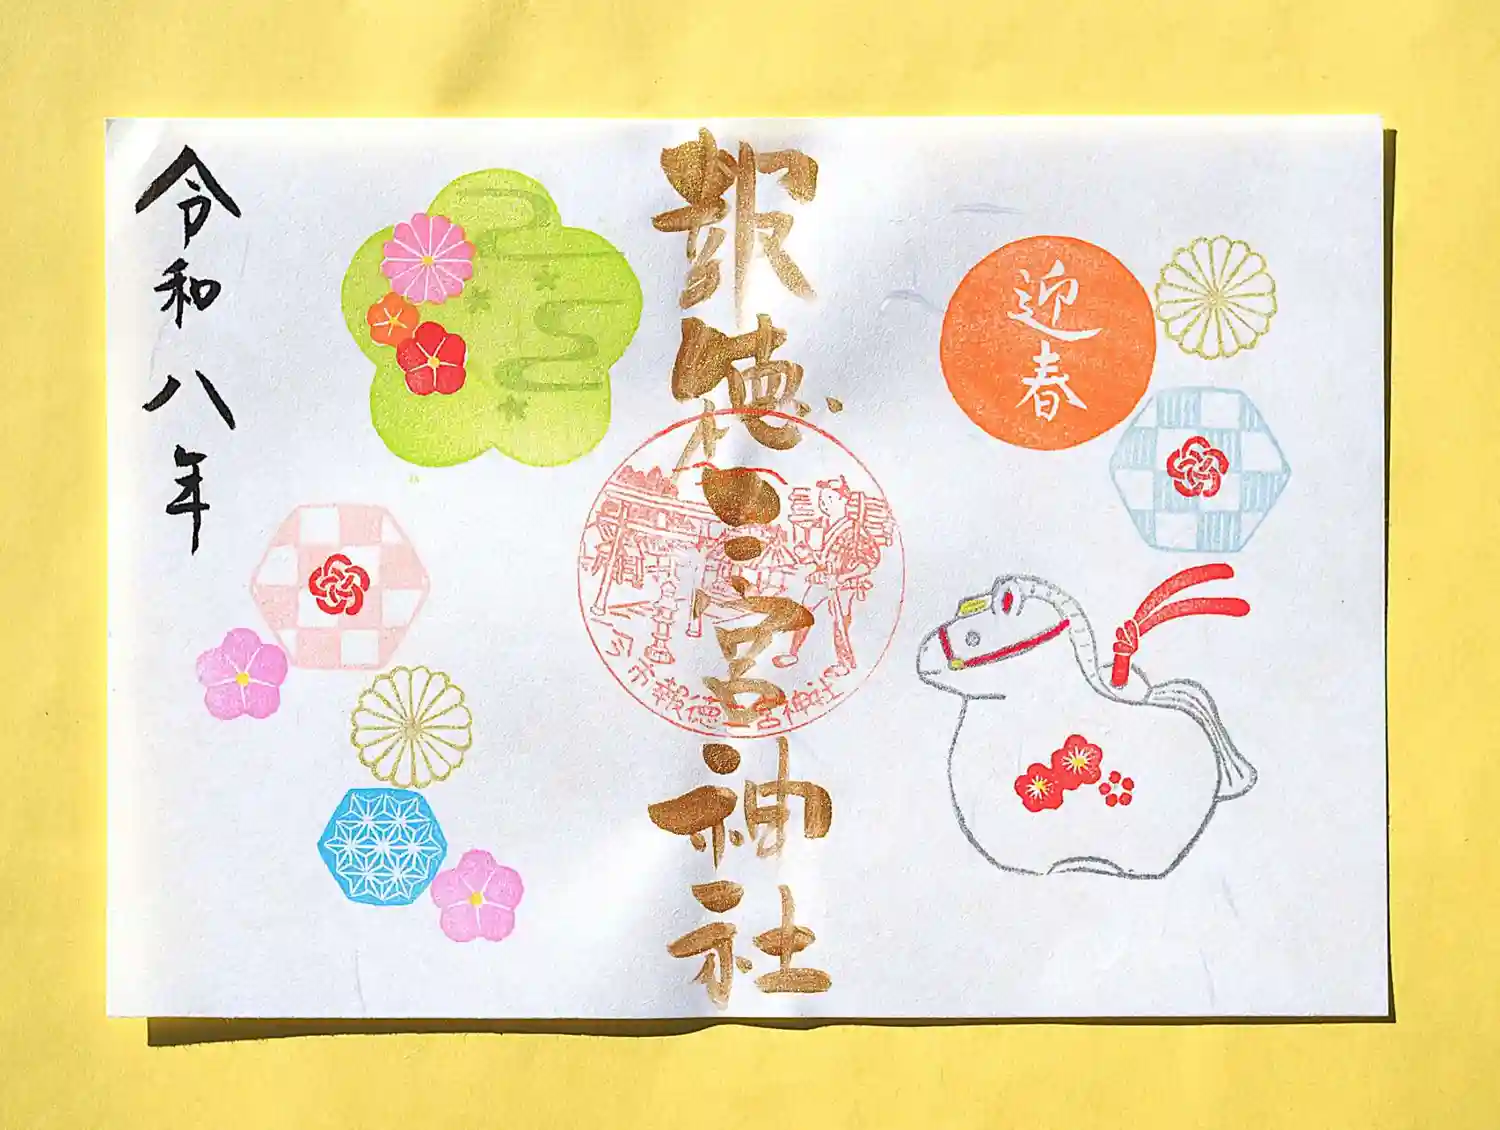 迎春
報徳二宮神社
今市報徳二宮神社
令和八年